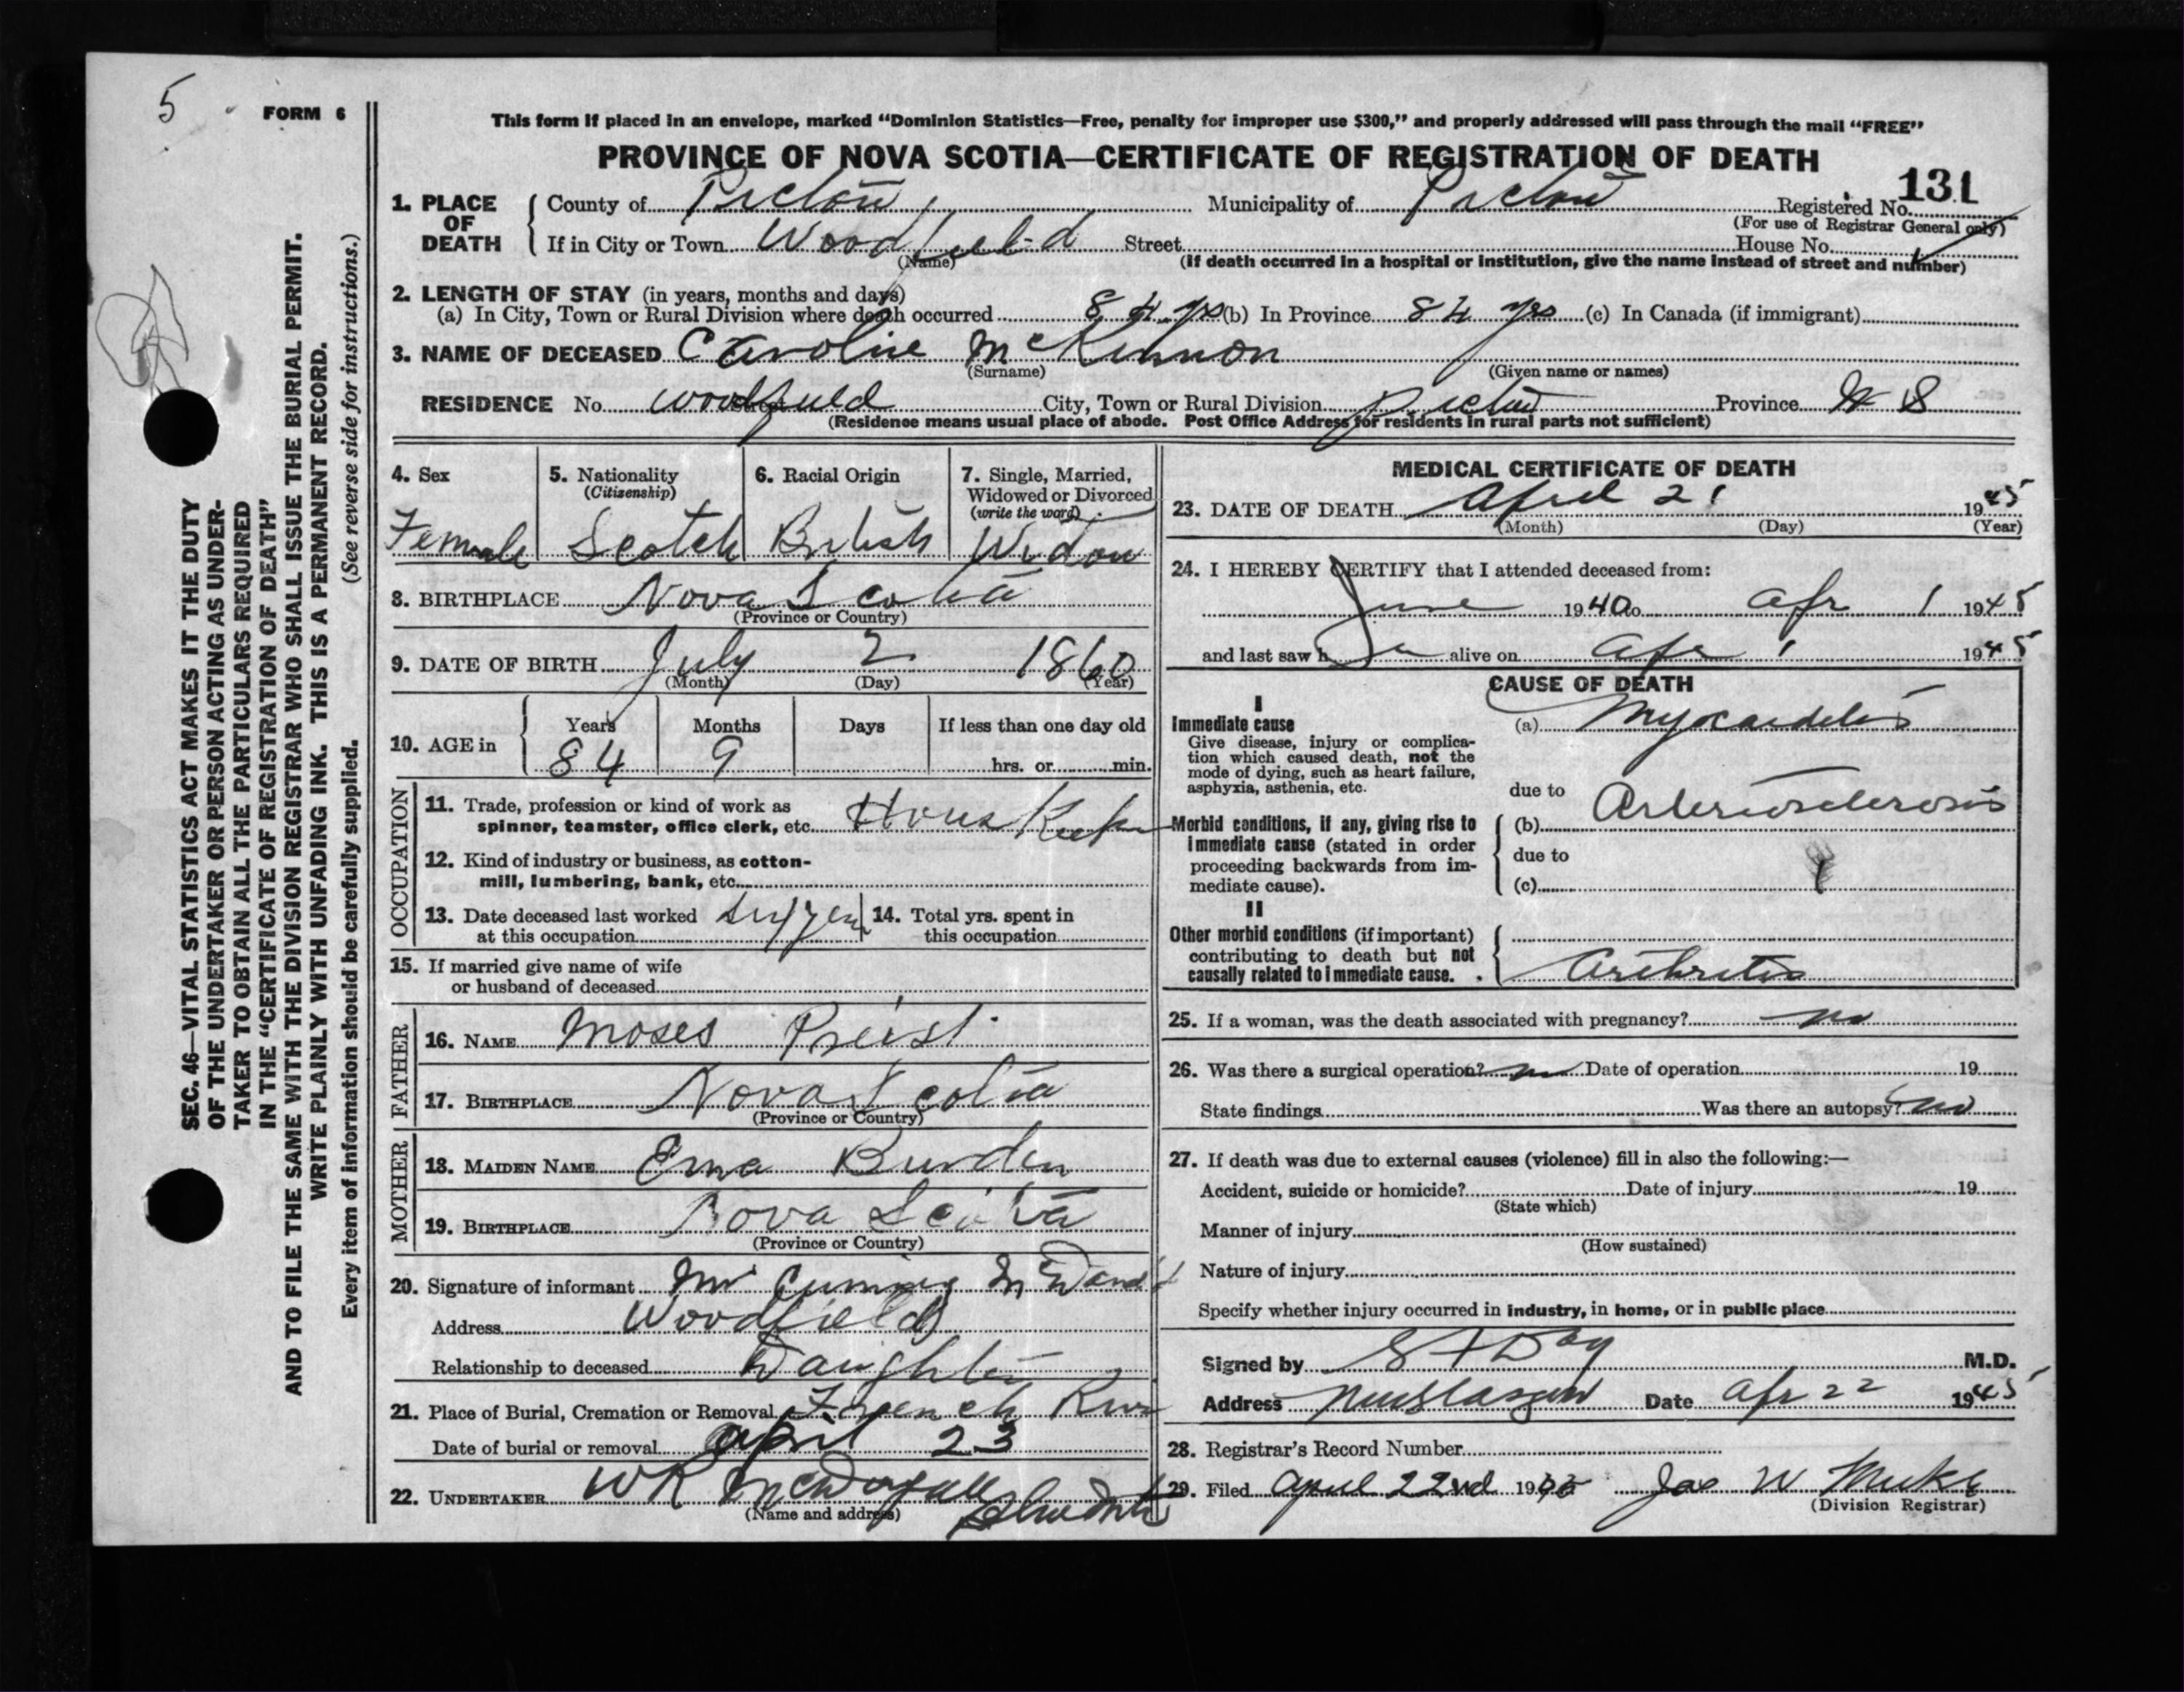 5
FORM 6
This form if placed in an envelope, marked “Dominion Statistics—Free, penalty for improper use $300,” and properly addressed will pass through the mail “FREE”
PROVINCE OF NOVA SCOTIA—CERTIFICATE OF REGISTRATION OF DEATH
131
1. PLACE OF DEATH
County of Pictou Municipality of Pictou Registered No.
(For use of Registrar General only)
If in City or Town Woodfield Street House No.
(Name) (If death occurred in a hospital or institution, give the name instead of street and number)
2. LENGTH OF STAY (in years, months and days)
(a) In City, Town or Rural Division where death occurred 84 yrs (b) In Province 84 yrs (c) In Canada (if immigrant)
3. NAME OF DECEASED Caroline McKinnon
(Surname) (Given name or names)
RESIDENCE No. Woodfield Street City, Town or Rural Division Pictou Province N S
(Residence means usual place of abode. Post Office Address for residents in rural parts not sufficient)
4. Sex
Female
5. Nationality
(Citizenship)
Scotch
6. Racial Origin
British
7. Single, Married,
Widowed or Divorced
(write the word)
Widow
8. BIRTHPLACE Nova Scotia
(Province or Country)
9. DATE OF BIRTH July 2 1860
(Month) (Day) (Year)
10. AGE in
Years Months Days If less than one day old
84 9 hrs. or min.
OCCUPATION
11. Trade, profession or kind of work as
spinner, teamster, office clerk, etc. Hous Keeper
12. Kind of industry or business, as cotton-
mill, lumbering, bank, etc.
13. Date deceased last worked
at this occupation
14. Total yrs. spent in
this occupation
15. If married give name of wife
or husband of deceased
FATHER
16. NAME Moses Preist
17. BIRTHPLACE Nova Scotia
(Province or Country)
MOTHER
18. MAIDEN NAME Ema Burden
19. BIRTHPLACE Nova Scotia
(Province or Country)
20. Signature of informant
Address Woodfield
Relationship to deceased Daughter
21. Place of Burial, Cremation or Removal French River
Date of burial or removal April 23
22. UNDERTAKER W R McDougall
(Name and address)
MEDICAL CERTIFICATE OF DEATH
23. DATE OF DEATH April 21 1945
(Month) (Day) (Year)
24. I HEREBY CERTIFY that I attended deceased from:
June 1940 to Apr 1 1945
and last saw her alive on Apr 1 1945
CAUSE OF DEATH
I
Immediate cause
Give disease, injury or complica-
tion which caused death, not the
mode of dying, such as heart failure,
asphyxia, asthenia, etc.
(a) Myocarditis
due to
Morbid conditions, if any, giving rise to
immediate cause (stated in order
proceeding backwards from im-
mediate cause).
(b) Arteriosclerosis
due to
(c)
II
Other morbid conditions (if important)
contributing to death but not
causally related to immediate cause.
Arthritis
25. If a woman, was the death associated with pregnancy? no
26. Was there a surgical operation? no Date of operation 19
State findings Was there an autopsy? no
27. If death was due to external causes (violence) fill in also the following:—
Accident, suicide or homicide? Date of injury 19
(State which)
Manner of injury
(How sustained)
Nature of injury
Specify whether injury occurred in industry, in home, or in public place
Signed by S F Day M.D.
Address New Glasgow Date Apr 22 1945
28. Registrar's Record Number
29. Filed April 22nd 1945 Jas W
(Division Registrar)
SEC. 46—VITAL STATISTICS ACT MAKES IT THE DUTY
OF THE UNDERTAKER OR PERSON ACTING AS UNDER-
TAKER TO OBTAIN ALL THE PARTICULARS REQUIRED
IN THE “CERTIFICATE OF REGISTRATION OF DEATH”
AND TO FILE THE SAME WITH THE DIVISION REGISTRAR WHO SHALL ISSUE THE BURIAL PERMIT.
WRITE PLAINLY WITH UNFADING INK. THIS IS A PERMANENT RECORD.
Every item of information should be carefully supplied. (See reverse side for instructions.)